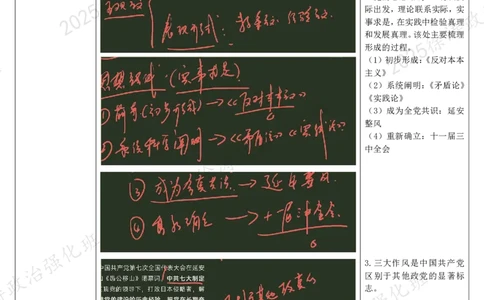 表现形式：教条主义、经验主义
思想路线：（实事求是）
①前奏（初步形成）→《反对本本》
②系统科学阐明→《矛盾论》《实践论》
③成为全党共识：→延安整风
④重新确立→十一届三中全会
中国共产党第七次全国代表大会在延安
《愚公移山》
中共七大制定
际出发，理论联系实际，实
事求是，在实践中检验真理
和发展真理。该处主要梳理
形成的过程。
（1）初步形成：《反对本本
主义》
（2）系统阐明：《矛盾论》
《实践论》
（3）成为全党共识：延安
整风
（4）重新确立：十一届三
中全会
3.三大作风是中国共产党
区别于其他政党的显著标
志。